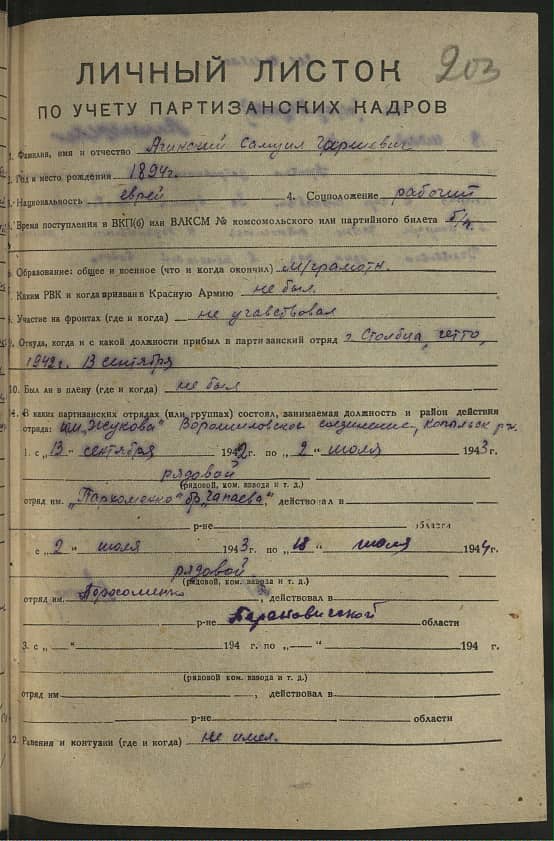 203
ЛИЧНЫЙ ЛИСТОК
ПО УЧЕТУ ПАРТИЗАНСКИХ КАДРОВ
1. Фамилия, имя и отчество Агинский Самуил
2. Год и место рождения 1894г.
3. Национальность еврей 4. Соцположение рабочий
5. Время поступления в ВКП(б) или ВЛКСМ № комсомольского или партийного билета б/п.
6. Образование: общее и военное (что и когда окончил) м/грамотн.
7. Каким РВК и когда призван в Красную Армию не был.
8. Участие на фронтах (где и когда) не учавствовал
9. Откуда, когда и с какой должности прибыл в партизанский отряд г. Столбцы, гетто,
1942г. 13 сентября
10. Был ли в плену (где и когда) не был
В каких партизанских отрядах (или группах) состоял, занимаемая должность и район действия
отряда: им. Жукова" Ворошиловское соединение, Копыльск. р-н.
1. с „13" сентября 1942г. по „2" июля 1943г.
рядовой
(рядовой, ком. взвода и т. д.)
отряд им. „Пархоменко" бр. „Чапаева", действовал в
р-не области
с „2" июля 1943г. по „18" июля 1944г.
рядовой
(рядовой, ком. взвода и т. д.)
отряд им. Пархоменко, действовал в
р-не Барановичской области
3. с „ — " 194 г. по „ — " 194 г.
(рядовой ком. взвода и т. д.)
отряд им , действовал в
р-не области
12. Ранения и контузии (где и когда) не имел.